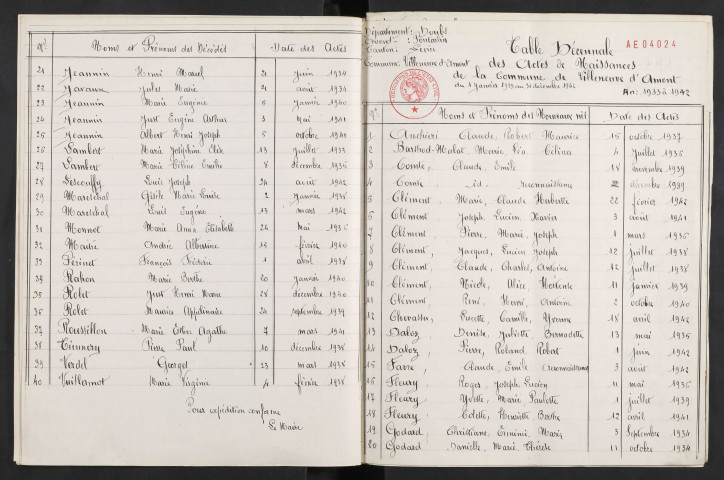 Nos Noms et Prénoms des Décédés Date des Actes
21 Jeannin Henri Marcel 21 juin 1934
22 Javaux Jules Marie 2 août 1934
23 Jeannin Marie Eugénie 6 janvier 1940
24 Jeannin Just Eugène Arthur 3 mai 1941
25 Jeannin Albert Henri Joseph 5 octobre 1941
26 Lambert Marie Joséphine Elise 13 juillet 1933
27 Lambert Marie Célina Emilie 8 décembre 1936
28 Lescoffy Louis Joseph 24 avril 1942
29 Maréchal Gisèle Marie Louise 2 janvier 1938
30 Maréchal Louis Eugène 13 mars 1942
31 Monnot Marie Anna Elisabeth 24 mai 1936
32 André Albertine 16 février 1940
33 Périnet François Frédéric 1 avril 1938
34 Rahon Marie Berthe 20 janvier 1940
35 Rolet Just Henri 28 décembre 1940
36 Rolet Maurice Appolinaire 24 septembre 1939
37 Roussillon Marie Agathe 7 mars 1941
38 Pierre Paul 10 décembre 1938
39 Verdel Georges 23 mars 1938
40 Vuillamot Marie Virginie 4 février 1938
Pour expédition conforme
Le Maire
Département: Doubs
Arrond.: Pontarlier
Canton: Levier
Commune: Villeneuve d'Amont
Table Décennale
AE04024
des Actes de Naissances
de la Commune de Villeneuve d'Amont
du 1 Janvier 1933 au 31 décembre 1942
An: 1933 à 1942
Nos Noms et Prénoms des Nouveaux nés Date des Actes
1 Claude, Robert Maurice 15 octobre 1937
2 Barthod-Malat, Marie, Léa Célina 4 juillet 1936
3 Comte, Claude, Emile 18 novembre 1939
4 Comte, id. reconnaissance 2 décembre 1939
5 Clément, Marie, Claude Huberte 22 février 1942
6 Clément Joseph Lucien Xavier 3 août 1941
7 Clément, Pierre, Marie Joseph 1 mars 1936
8 Clément, Jacques, Lucien Joseph 12 juillet 1938
9 Clément, Claude, Charles, Antoine 12 juillet 1938
10 Clément, Nicole, Alice Hortense 11 janvier 1939
11 Clément, René, Henri, Antoine 2 octobre 1940
12 Chevassu, Lucette Camille, Yvonne 18 avril 1942
13 Daloz, Denise, Juliette Bernadette 13 mai 1935
14 Daloz, Pierre, Roland Robert 1 juin 1942
15 Favre, Claude, Emile reconnaissance 3 août 1942
16 Fleury, Roger, Joseph Lucien 11 mai 1936
17 Fleury, Yvette, Marie Paulette 1 juillet 1939
18 Fleury, Colette, Henriette Berthe 12 avril 1941
19 Godard, Christiane, Marie 3 Septembre 1934
20 Godard, Danielle, Marie Thérèse 11 octobre 1938